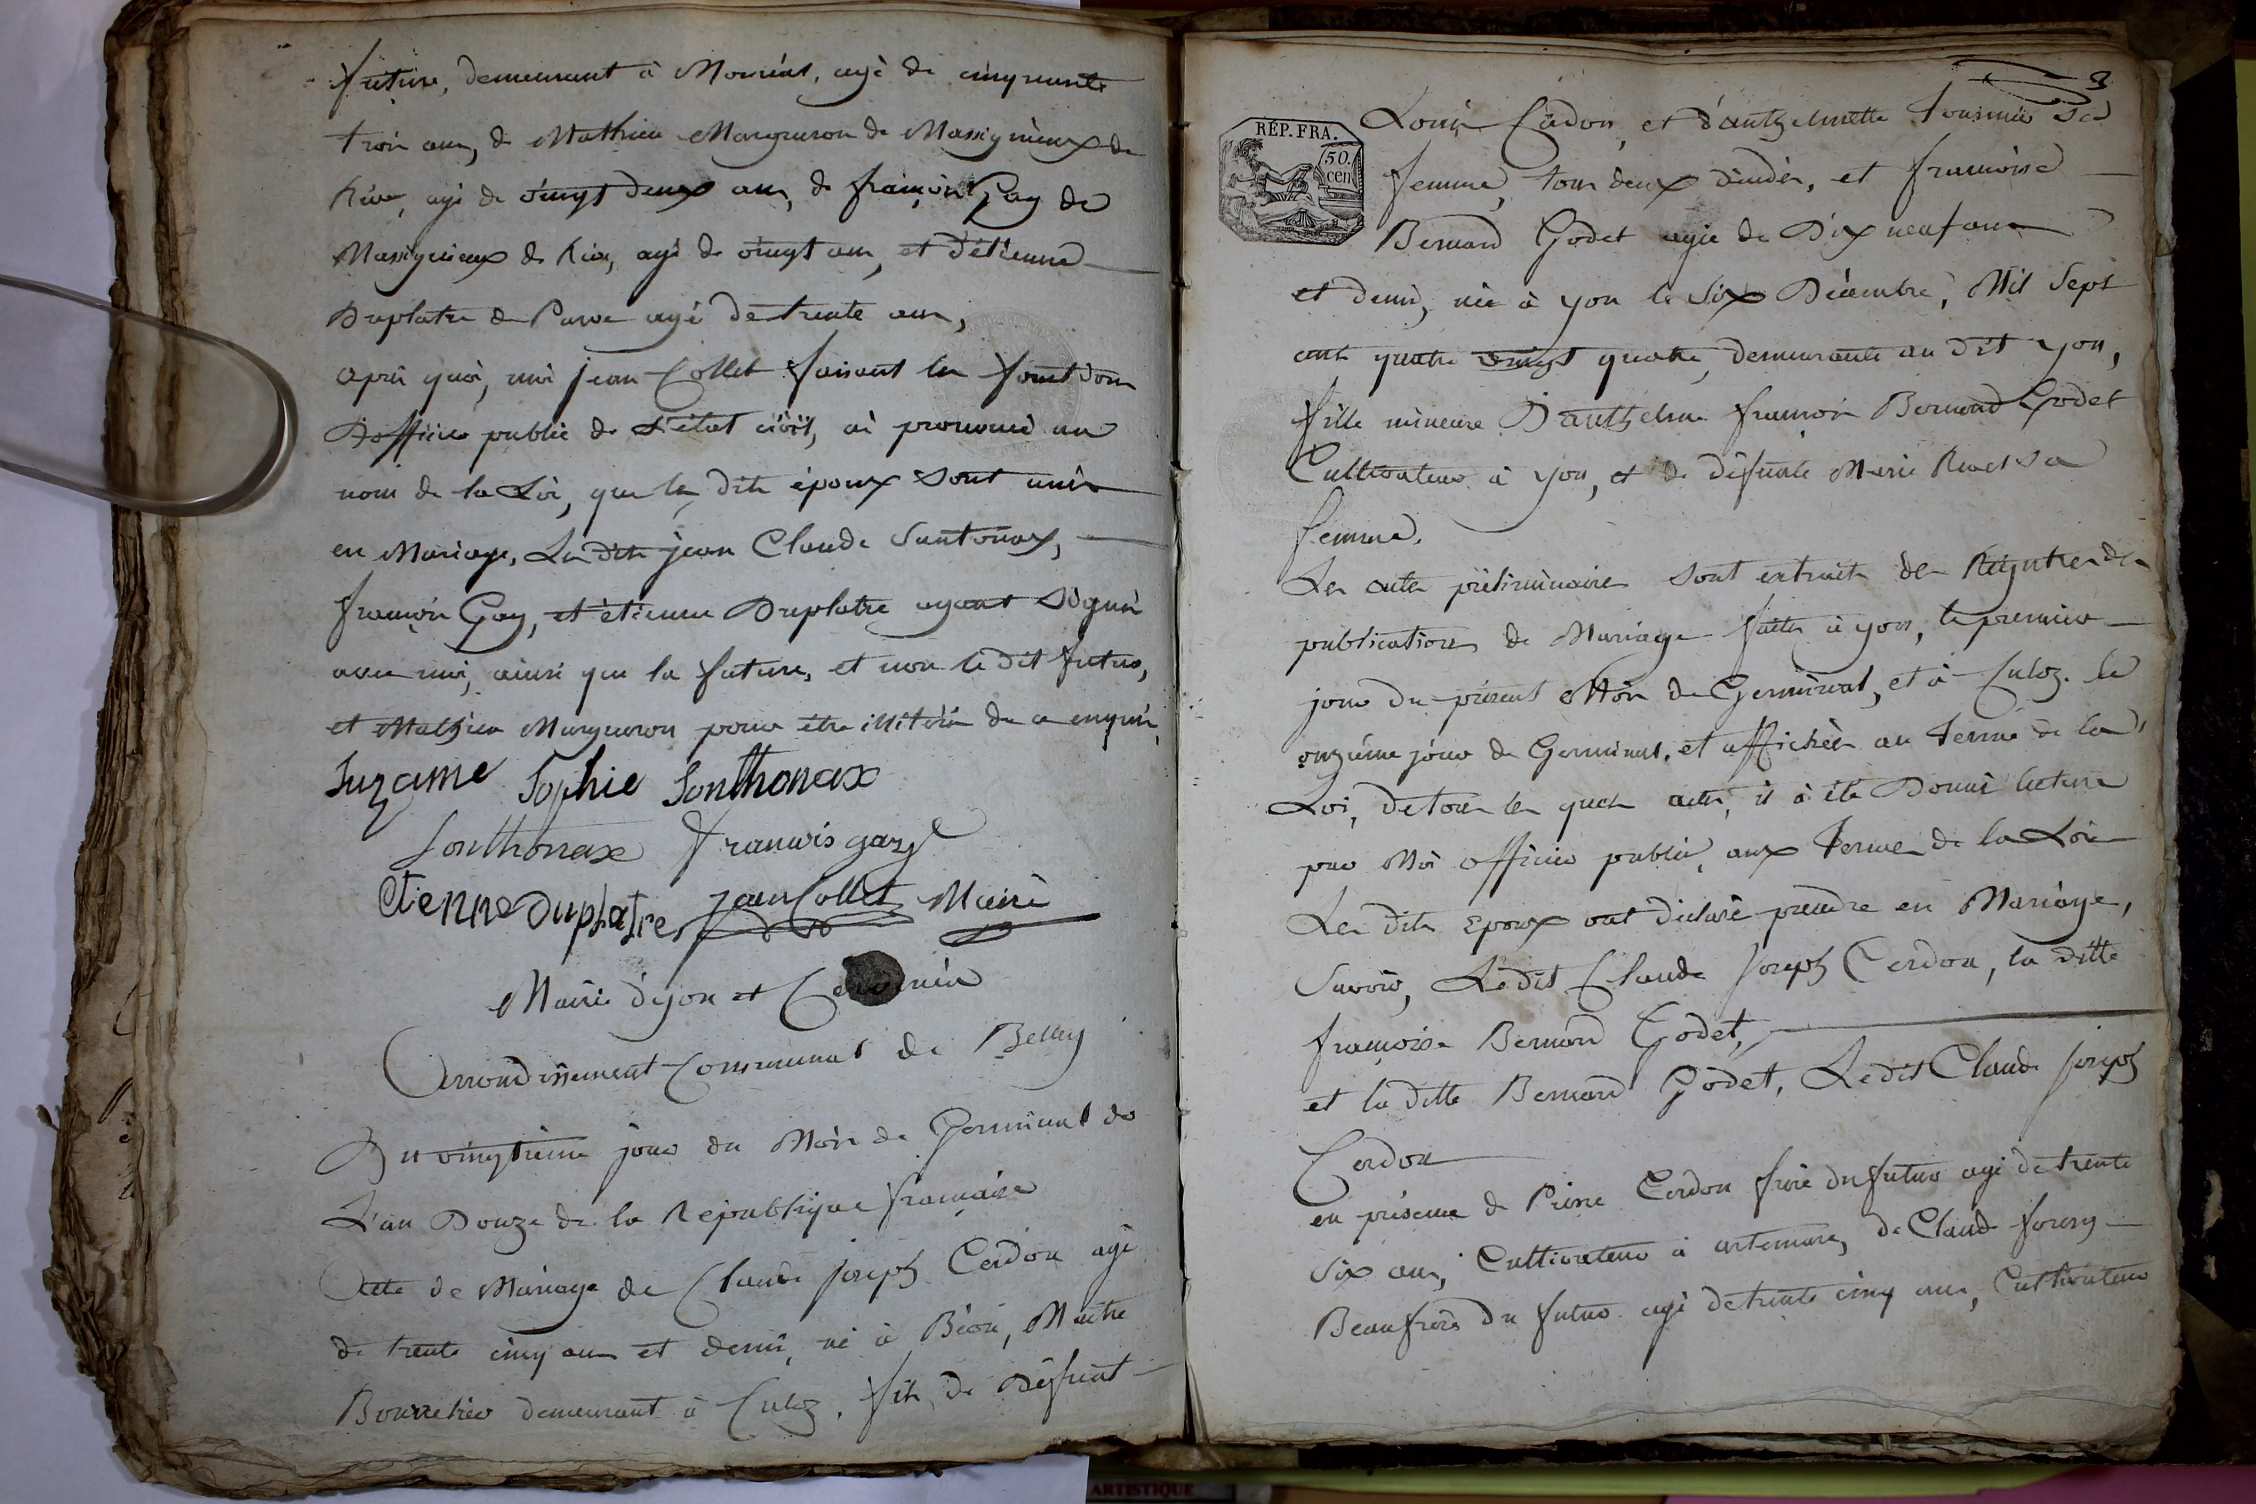 future, demeurant à Morréal, agé de cinquante
trois ans, de Mathieu Margueron de Massignieux de
Rive, agé de vingt deux ans, de françois Gay de
Massignieux de Rive, agé de vingt ans, et d'étienne
Duplatre de Parve agé de trente ans,
après quoi, moi jean Collet faisant les fonctions
D'officier public de l'état civil, ai prononcé au
nom de la Loi, que les dits époux sont unis
en Mariage, Les dits jean Claude Santonax,
françois Gay, et étienne Duplatre ayant signés
avec moi, ainsi que la future, et non le dit futur,
et Mathieu Margueron pour être illitérés de ce enquis,
Suzanne Sophie Sonthonax
Sonthonax francois gay
Etienne Duplatre jean Collet Maire
Mairie d'yon et
Arrondissement Communal de Belley
Du vingtième jour du Mois de Germinal de
L'an Douze de la République française
Acte de Mariage de Claude joseph Cerdon agé
de trente cinq ans et demi, né à Béon, Maitre
Bourrelier demeurant à Culoz, fils de Défunt
3
RÉP. FRA.
50. cen
Louis Cerdon, et d'antzelmette sa
femme, tous deux décédés, et francoise
Bernard Godet agée de Dix neuf ans
et demi, née à yon le six Décembre, Mil Sept
cent quatre vingt quatre, demeurante au dit yon,
fille mineure D'antzelme françois Bernard Godet
Cultivateur à yon, et de défunte Marie sa
femme.
Les actes préliminaires sont extraits des Registres des
publications de Mariage faites à yon, le premier
jour du présent Mois de Germinal, et à Culoz le
onzième jour de Germinal, et affichées au Terme de la
Loi, de tous les quels actes, il à été Donné lecture
par Moi officier public, aux Termes de la Loi
Les dits Epoux ont déclaré prendre en Mariage,
Savoir, Ledit Claude Joseph Cerdon, la ditte
françoise Bernard Godet,
et la ditte Bernard Godet, Ledit Claude Joseph
Cerdon
en présence de Pierre Cerdon frère du futur agé de trente
six ans, Cultivateur à artemare, de Claude
Beaufrère du futur agé de trente cinq ans, Cultivateur
ARTISTIQUE